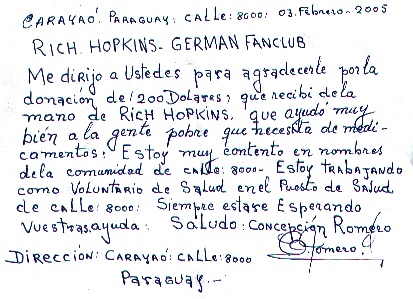 CARAYAÓ: PARAGUAY: CALLE: 8000: 03. Febrero - 2005
RICH. HOPKINS - GERMAN FANCLUB
Me dirijo a Ustedes para agradecerle por la
donación de: 200 Dolares; que recibi de la
mano de RICH HOPKINS, que ayudó muy
bién a la gente pobre que necesita de medi-
camentos: Estoy muy contento en nombres
dela comunidad de calle: 8000 - Estoy TRABAJANDO
como Voluntario de Salud en el Puesto de Salud
de calle: 8000: Siempre estare Esperando
Vuestras ayuda: Saludo: Concepción Romero
Romero
DIRECCIÓN: CARAYAÓ: CALLE: 8000
Paraguay.-